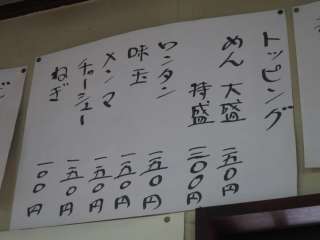 トッピング
めん 大盛 一五〇円
特盛 三〇〇円
ワンタン 一五〇円
味玉 一五〇円
メンマ 一五〇円
チャーシュー 一五〇円
ねぎ 一〇〇円